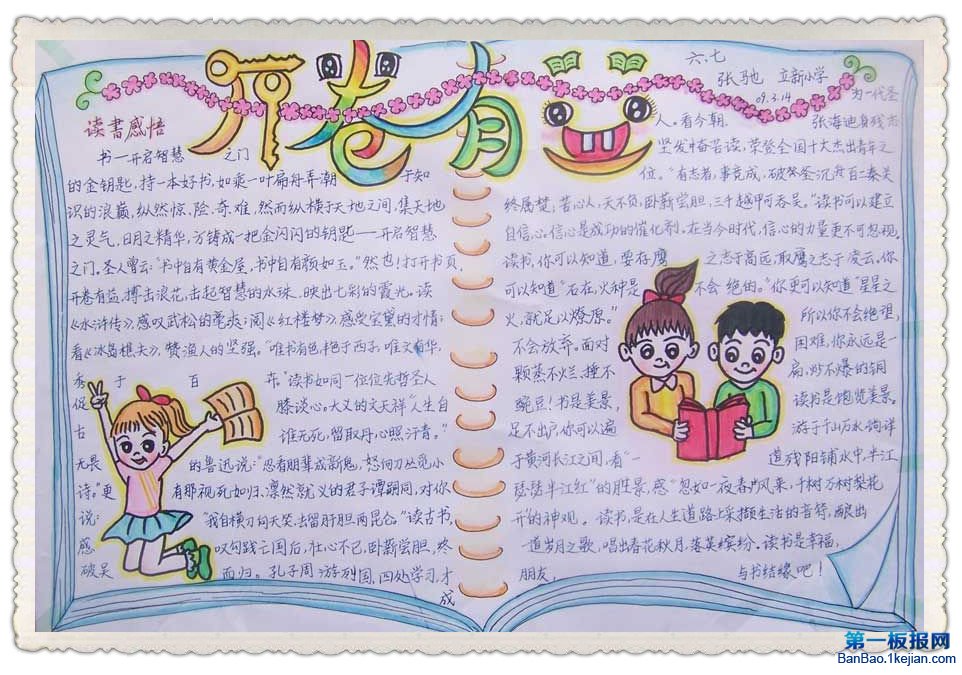 开卷有益
六.七
张驰 立新小学
09.3.14
读书感悟
书一开启智慧之门
的金钥匙，持一本好书，如乘一叶扁舟弄潮于知
识的浪巅，纵然惊、险、奇、难，然而纵横于天地之间，集天地
之灵气，日月之精华，方铸成一把金闪闪的钥匙——开启智慧
之门。圣人曾云："书中自有黄金屋，书中自有颜如玉。"然也！打开书页，
开卷有益，搏击浪花，击起智慧的水珠，映出七彩的霞光。读
《水浒传》，感叹武松的豪爽；阅《红楼梦》，感受宝黛的才情；
看《冰岛樵夫》，赞渔人的坚强。"唯书有色，艳于西子，唯文有华，
秀于百卉。"读书如同一位位先哲圣人
促膝谈心。大义的文天祥"人生自
古谁无死，留取丹心照汗青。"
无畏的鲁迅说："忍看朋辈成新鬼，怒向刀丛觅小
诗。"更有那视死如归、凛然就义的君子谭嗣同，对你
说："我自横刀向天笑，去留肝胆两昆仑。"读古书，
感叹勾践亡国后，壮心不已，卧薪尝胆，终
破吴而归。孔子周游列国，四处学习，才
成
为一代圣
人。看今朝，张海迪身残志
坚发奋苦读，荣登全国十大杰出青年之
位。"有志者，事竟成，破釜沉舟百二秦关
终属楚；苦心人，天不负，卧薪尝胆，三千越甲可吞吴。"读书可以建立
自信心。信心是成功的催化剂。在当今时代，信心的力量更不可忽视。
读书，你可以知道，要存鹰之志于高远，取鹰之志于凌云。你
可以知道"石在，火种是不会绝的。"你更可以知道"星星之
火，就足以燎原。"所以你不会绝望，
不会放弃。面对困难，你永远是一
颗蒸不烂、捶不扁、炒不爆的铜
豌豆！书是美景，读书是饱览美景。
足不出户，你可以遍游于千山万水，徜徉
于黄河长江之间，看"一道残阳铺水中，半江
瑟瑟半江红"的胜景，感"忽如一夜春风来，千树万树梨花
开"的神观。读书，是在人生道路上采撷生活的音符，酿出
一道岁月之歌，唱出春花秋月，落英缤纷。读书是幸福，
朋友，与书结缘吧！
第一板报网
BanBao.1kejian.com